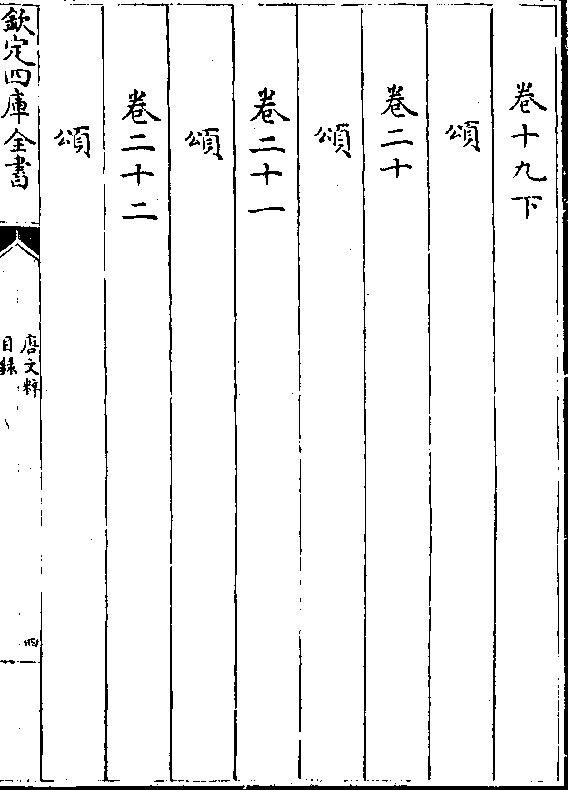 卷十九下
頌
卷二十
頌
卷二十一
頌
卷二十二
頌
欽定四庫全書
唐文粹
目錄
四